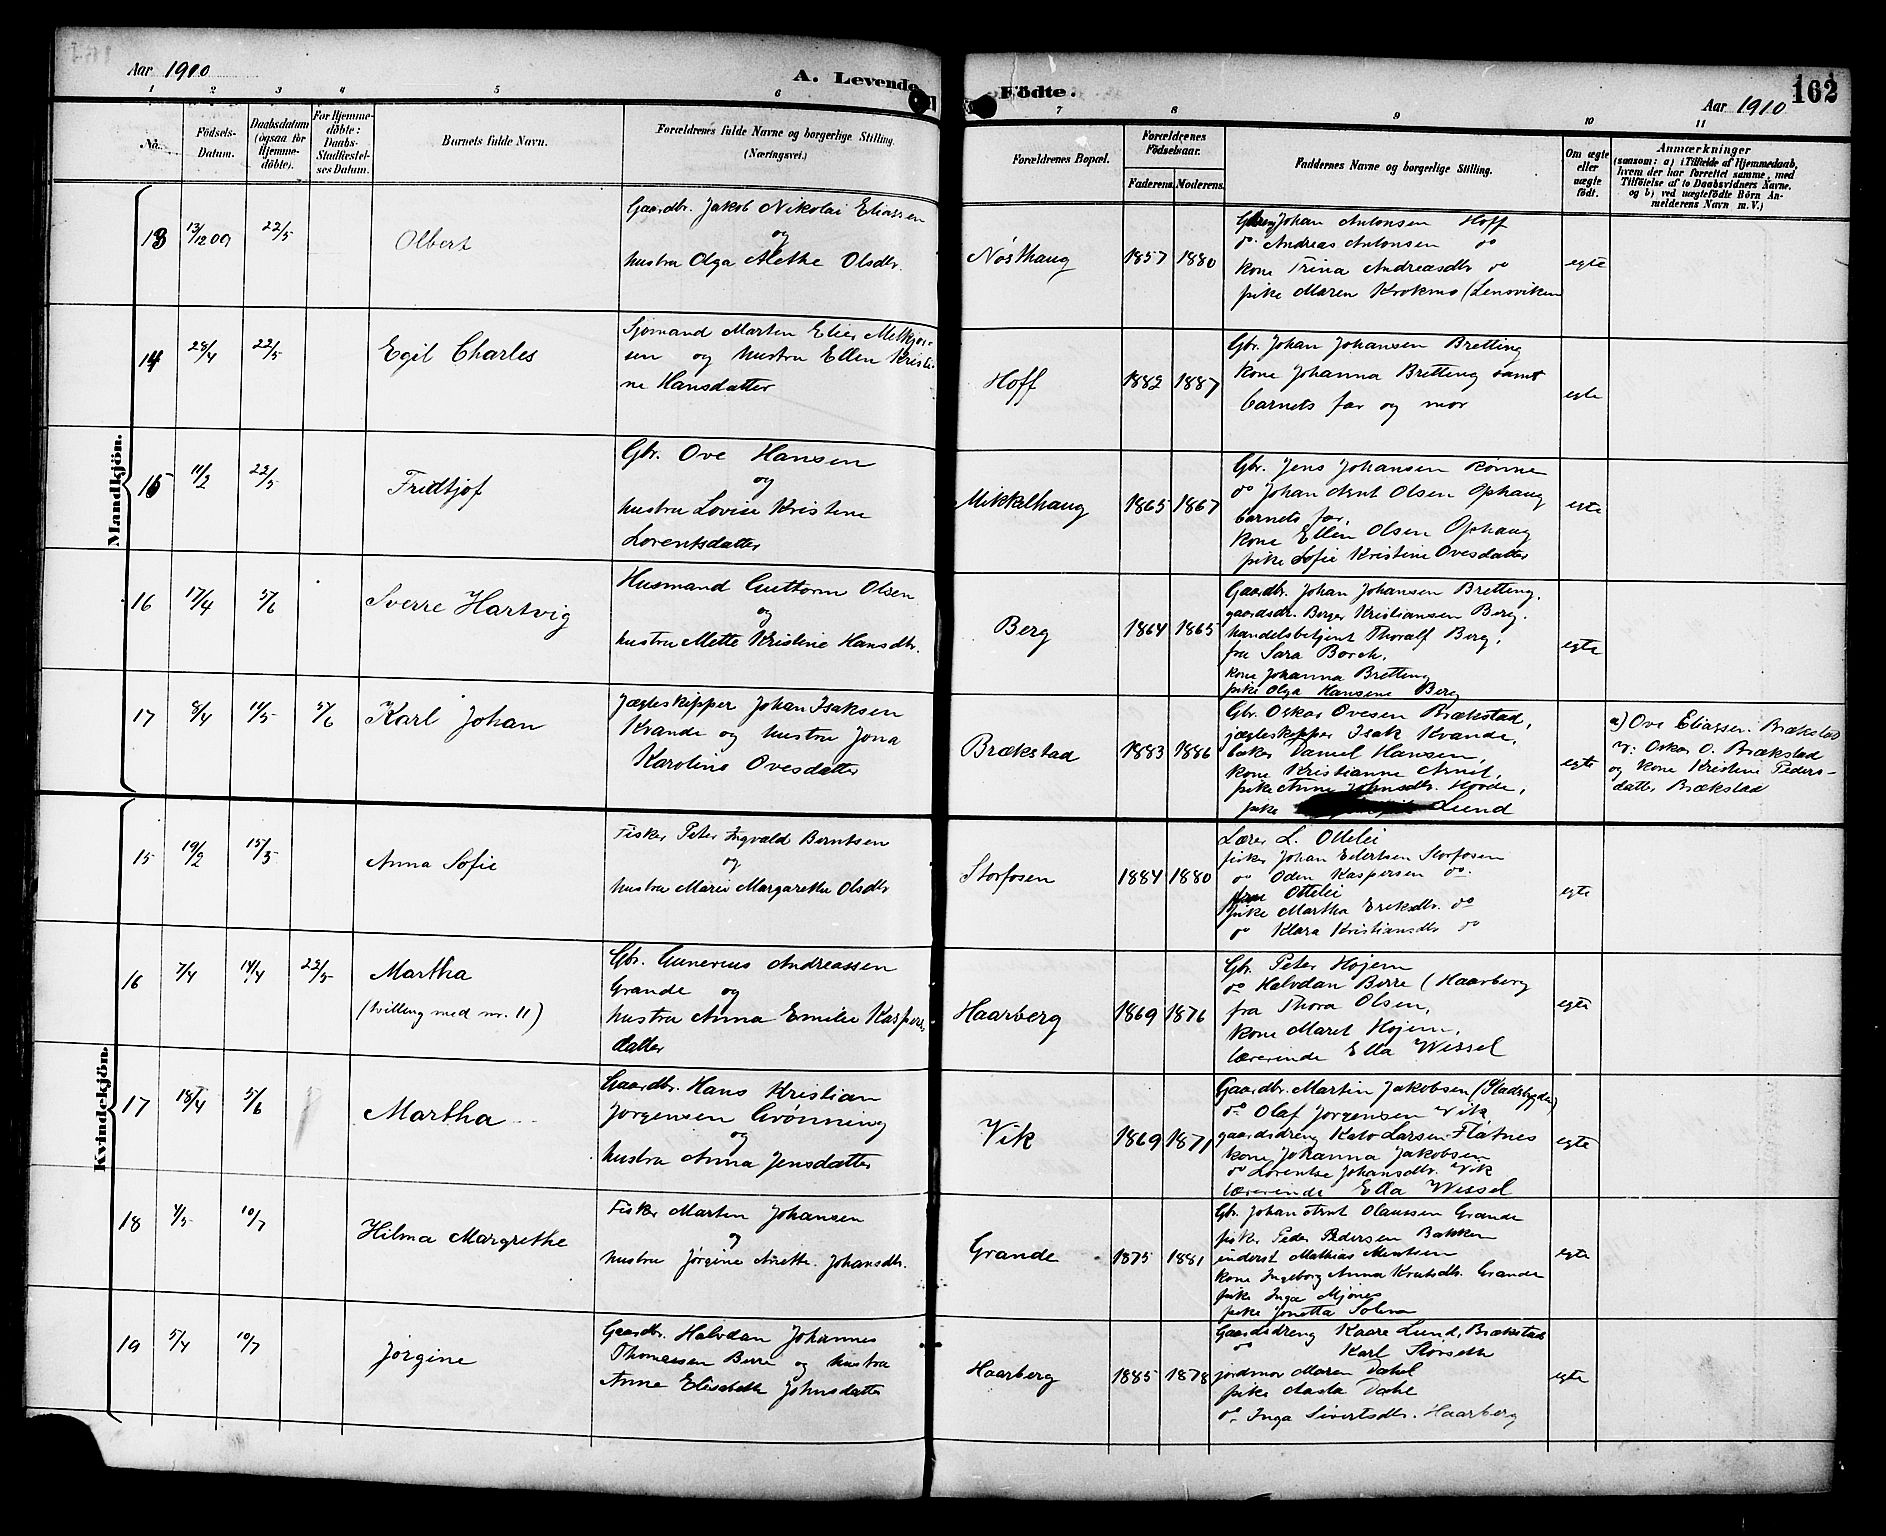 Aar 1910
A. Levende
Födte.
Aar 1910
162
1 2 3 4 5 6 7 8 9 10 11
No.
Födsels-
Datum.
Daabsdatum
(ogsaa for
Hjemme-
döbte).
For Hjemme-
döbte:
Daabs-
Stadfæstel-
ses Datum.
Barnets fulde Navn.
Forældrenes fulde Navne og borgerlige Stilling.
(Næringsvei.)
Forældrenes Bopæl.
Forældrenes
Födselsaar.
Faderens. Moderens.
Faddernes Navne og borgerlige Stilling.
Om ægte
eller
uægte
født.
Anmærkninger
(saasom: a) i Tilfælde af Hjemmedaab,
hvem der har forrettet samme, med
Tilföielse af to Daabsvidners Navne.
og b) ved uægtefödte Börn An-
melderens Navn m. V.)
Mandkjön.
13 13/12 09 22/5 Olbert
Gaardbr. Jakob Nikolai Eliassen
og
hustru Olga Alethe Olsdtr.
Nøsthaug 1857 1880
Johan Antonsen Hoff
do. Andreas Antonsen do
kone Trina Andreasdtr do
pike Maren Krokmo (Lensviken
egte
14 28/4 22/5 Egil Charles
Sjømand Marten Elier Melkjør-
sen og hustru Ellen Kristi-
ne Hansdatter
Hoff 1882 1887
Gbr. Johan Johansen Bretting
kone Johanna Bretting samt
barnets far og mor
egte
15 11/2 22/5 Fridtjof
Gbr. Ove Hansen
og
hustru Lovise Kristine
Lorentsdatter
Mikkelhaug 1865 1867
Gbr. Jens Johansen Rønne
do Johan Arnt Olsen Ophaug
barnets far,
kone Ellen Olsen Ophaug
pike Sofie Kristine Ovesdatter
egte
16 17/4 5/6 Sverre Hartvig
Husmand Guttorm Olsen
og
hustru Mette Kristine Hansdtr.
Berg 1864 1865
Gaardbr. Johan Johansen Bretting,
gaardsdr. Berger Kristiansen Berg,
handelsbetjent Thoralf Berg,
fru Sara Borch,
kone Johanna Bretting
pike Olga Hansine Berg
egte
17 8/4 14/5 5/6 Karl Johan
Jægteskipper Johan Isaksen
Kvande og hustru Jona
Karoline Ovesdatter
Brækstad 1883 1886
Gbr. Oskar Ovesen Brækstad,
jægteskipper Isak Kvande,
baker Daniel Hansen,
kone Kristianne Arnit,
pike Anne Johnsdtr. Hovde,
pike Lund
egte
a) Ove Eliassen Brækstad
v: Oskar O. Brækstad
og kone Kristine Peders-
datter Brækstad
Kvindekjön.
15 19/2 15/5 Anna Sofie
Fisker Peter Ingvald Berntsen
og
hustru Marie Margrethe Olsdtr
Storfosen 1884 1880
Lærer L. Ottelei
fisker Johan Edertsen Storfosen
do Oden Kaspersen do.
Ottelei
pike Martha Eriksdtr. do
do Klara Kristiansdtr do
egte
16 7/4 14/4 22/5 Martha
(tvilling med nr. 11)
Gbr. Gunerius Andreassen
Grande og
hustru Anna Emilie Kaspers
datter
Haarberg 1869 1876
Gbr. Peter Højem
do Halvdan Berre (Haarberg
fra Thora Olsen,
kone Maret Højem,
lærerinde Ella Wessel
egte
17 18/4 5/6 Martha
Gaardbr. Hans Kristian
Jørgensen Grønning
og
hustru Anna Jensdatter
Vik 1869 1871
Gaardbr. Martin Jakobsen (Stadsbygden)
do Olaf Jørgensen Vik
gaardsdreng Kato Larsen Flatnes
kone Johanna Jakobsen
do Lorentse Johansdtr. Vik
lærerinde Ella Wessel
egte
18 4/5 10/7 Hilma Margrethe
Fisker Marten Johansen
og
hustru Jørgine Anette Johansdtr.
Grande 1875 1881
Gbr. Johan Arnt Olaussen Grande
fisker Peder Pedersen Bakken
inderst Mathias Mentsen
kone Ingeborg Anna Knutsdtr. Grande
pike Inga Mjønes
pike Jonetta Solem
egte
19 5/4 10/7 Jørgine
Gaardbr. Halvdan Johannes
Thomassen Berre og hustru
Anne Elisabeth Johnsdatter
Haarberg 1885 1878
Gaardsdreng Kaare Lund, Brækstad
do Karl Størseth
jordmor Maren Dahl
pike Aasta Dahl
do. Inga Sivertsdtr. Haarberg
egte